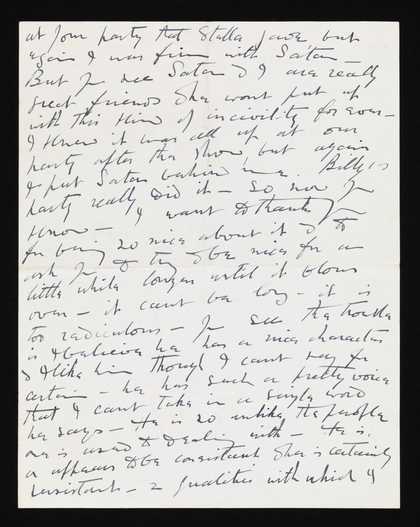 at your party that Stella gave but
again I was firm with Satan –
But you see Satan & I are really
great friends She wont put up
with this kind of incivility for ever –
I knew it was all up at our
party after the show but again
I put Satan behind me. Billy's
party really did it – so now you
know – I want to thank you
for being so nice about it & to
ask you to try & be nice for a
little while longer until it blows
over – it cant be long – it is
too rediculous – you see the trouble
is I believe he has a nice character
& I like him though I cant say for
certain – he has such a pretty voice
that I cant take in a single word
he says – He is so unlike the people
one is used to dealing with – He is,
or appears to be consistent She is certainly
persistent – 2 qualities with which I